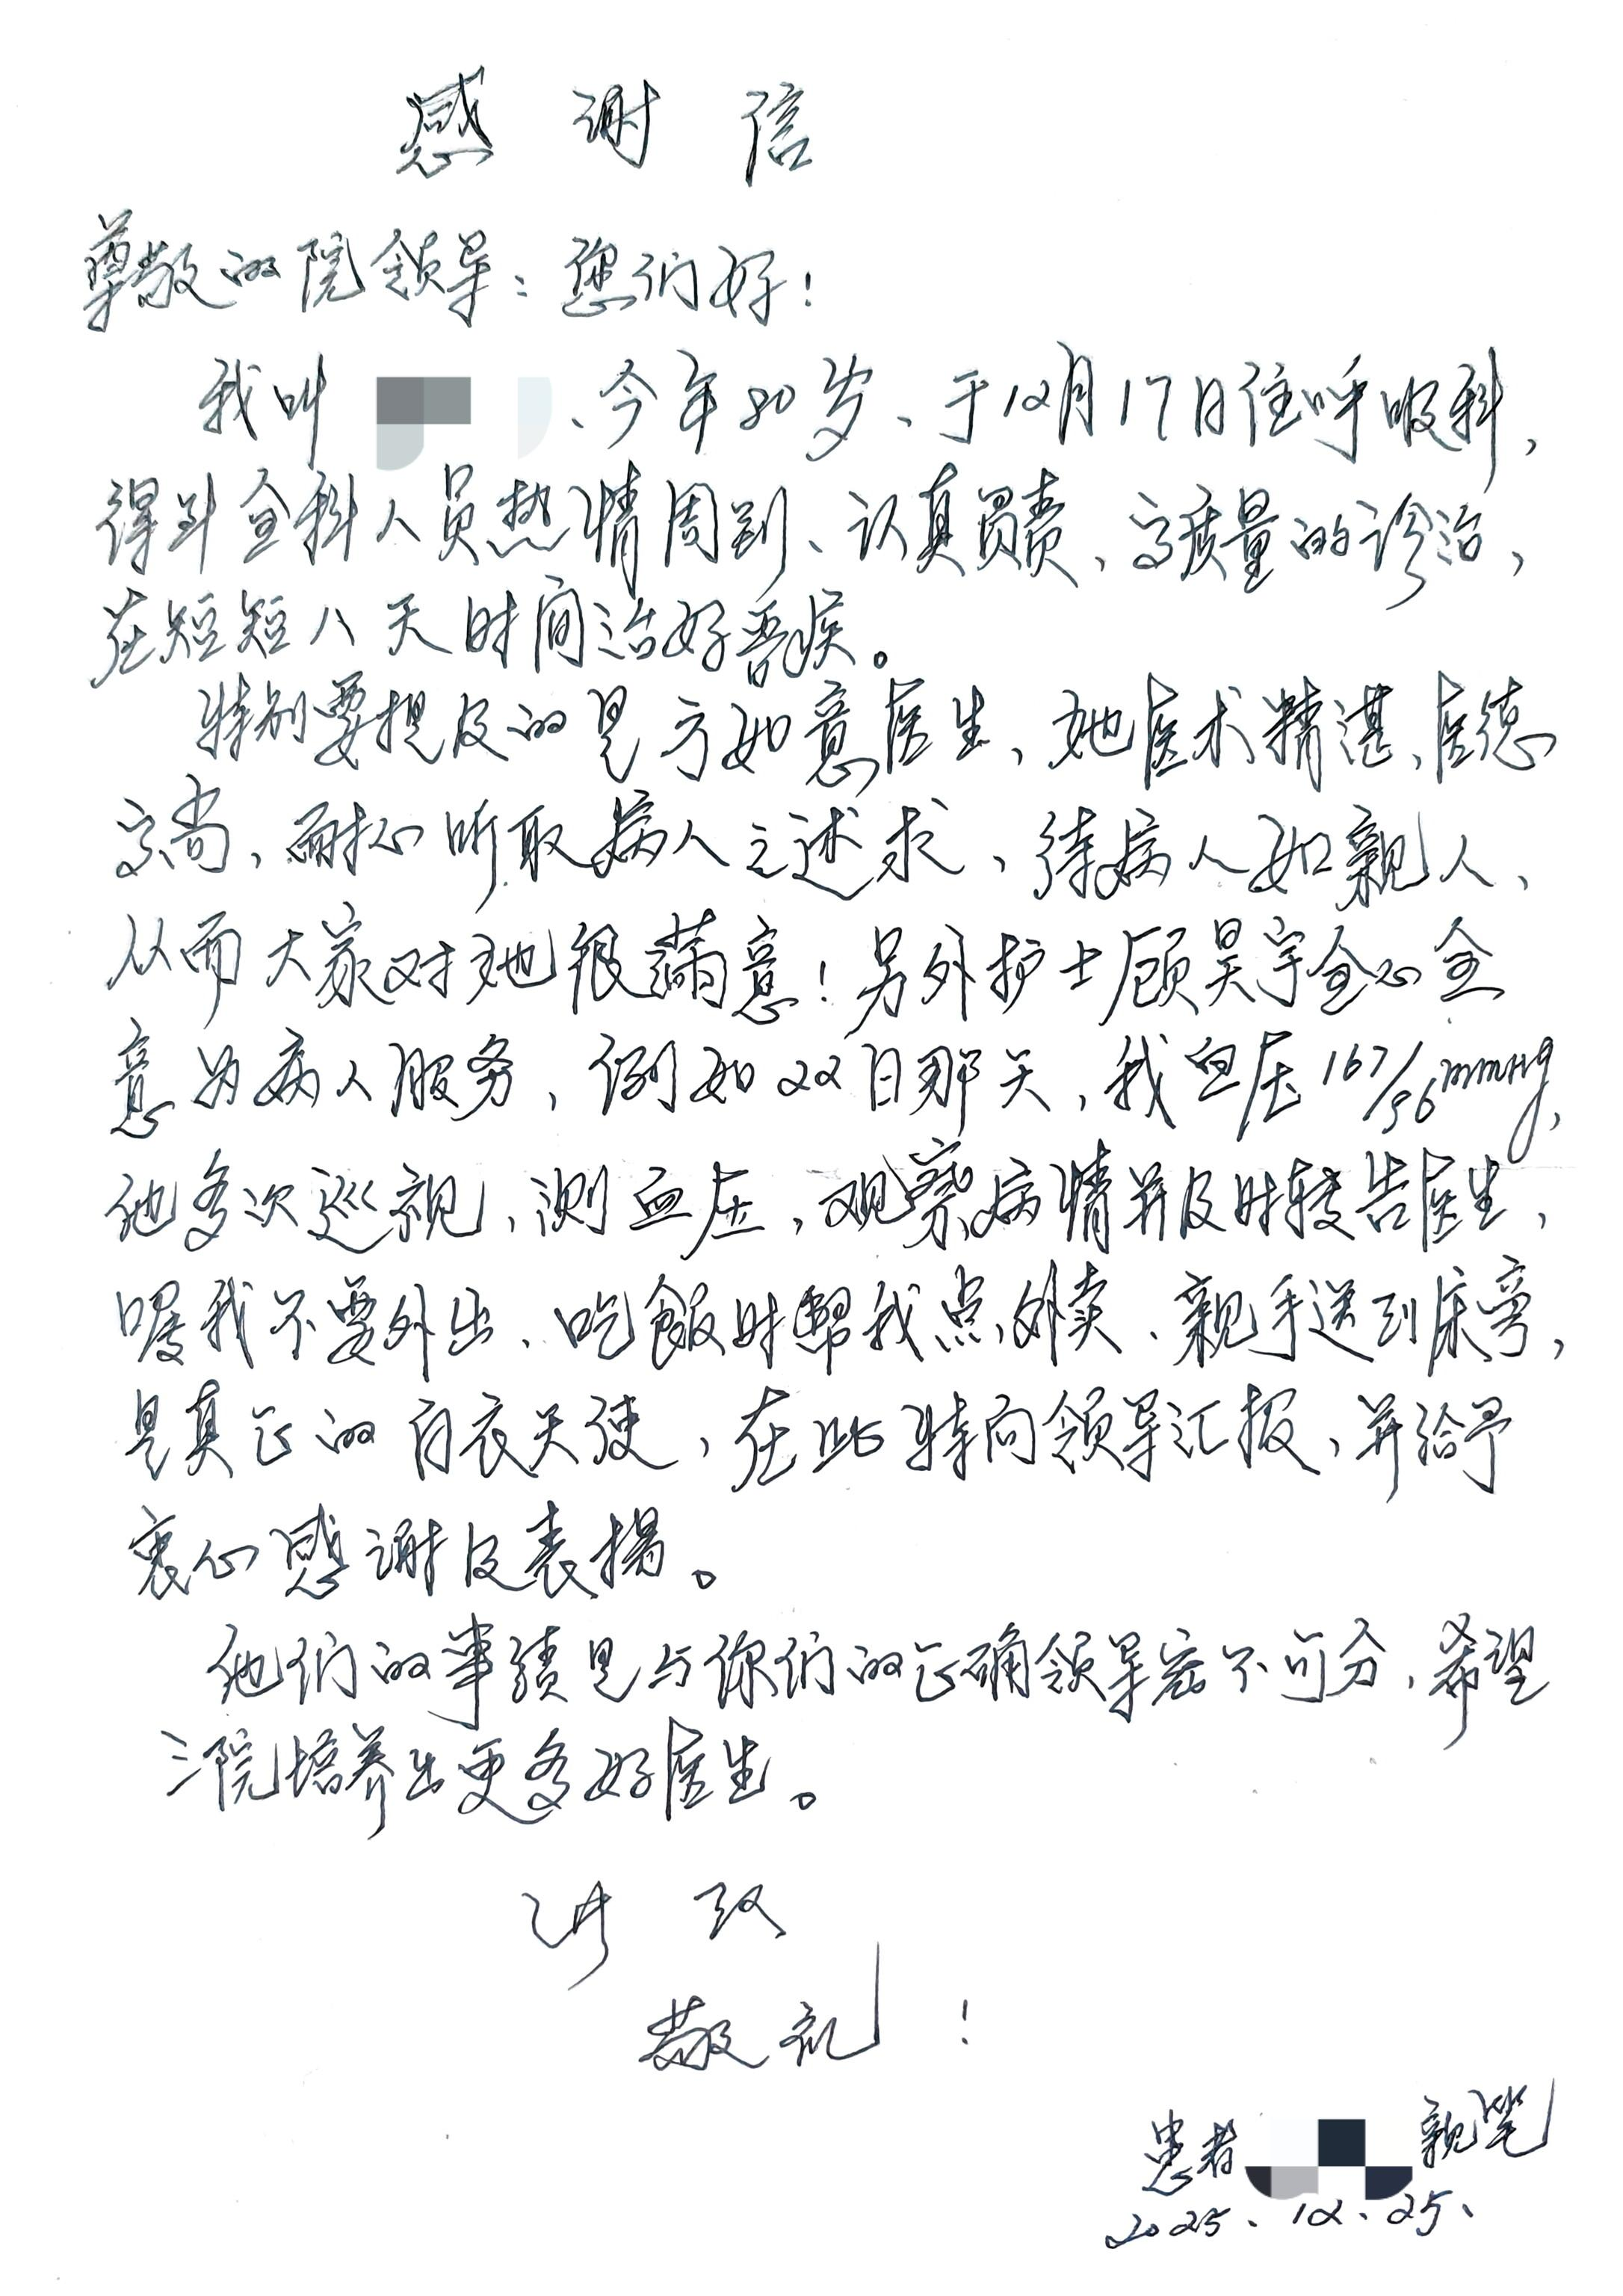 感谢信
尊敬的院领导：您们好！
我叫 、今年80岁、于12月17日住呼吸科，
得到全科人员热情周到、认真负责、高质量的诊治，
在短短八天时间治好吾疾。
特别要提及的是方如意医生、她医术精湛、医德
高尚，耐心听取病人之述求、待病人如亲人、
从而大家对她很满意！另外护士顾昊宇全心全
意为病人服务，例如22日那天，我血压167/96mmHg，
他多次巡视，测血压，观察病情并及时转告医生，
嘱我不要外出、吃飯时帮我点外卖、亲手送到床旁，
是真正的白衣天使，在此特向领导汇报、并给予
衷心感谢及表揚。
他们的事绩是与你们的正确领导密不可分，希望
三院培养出更多好医生。
此致
敬礼！
患者 親笔
2025、12、25、